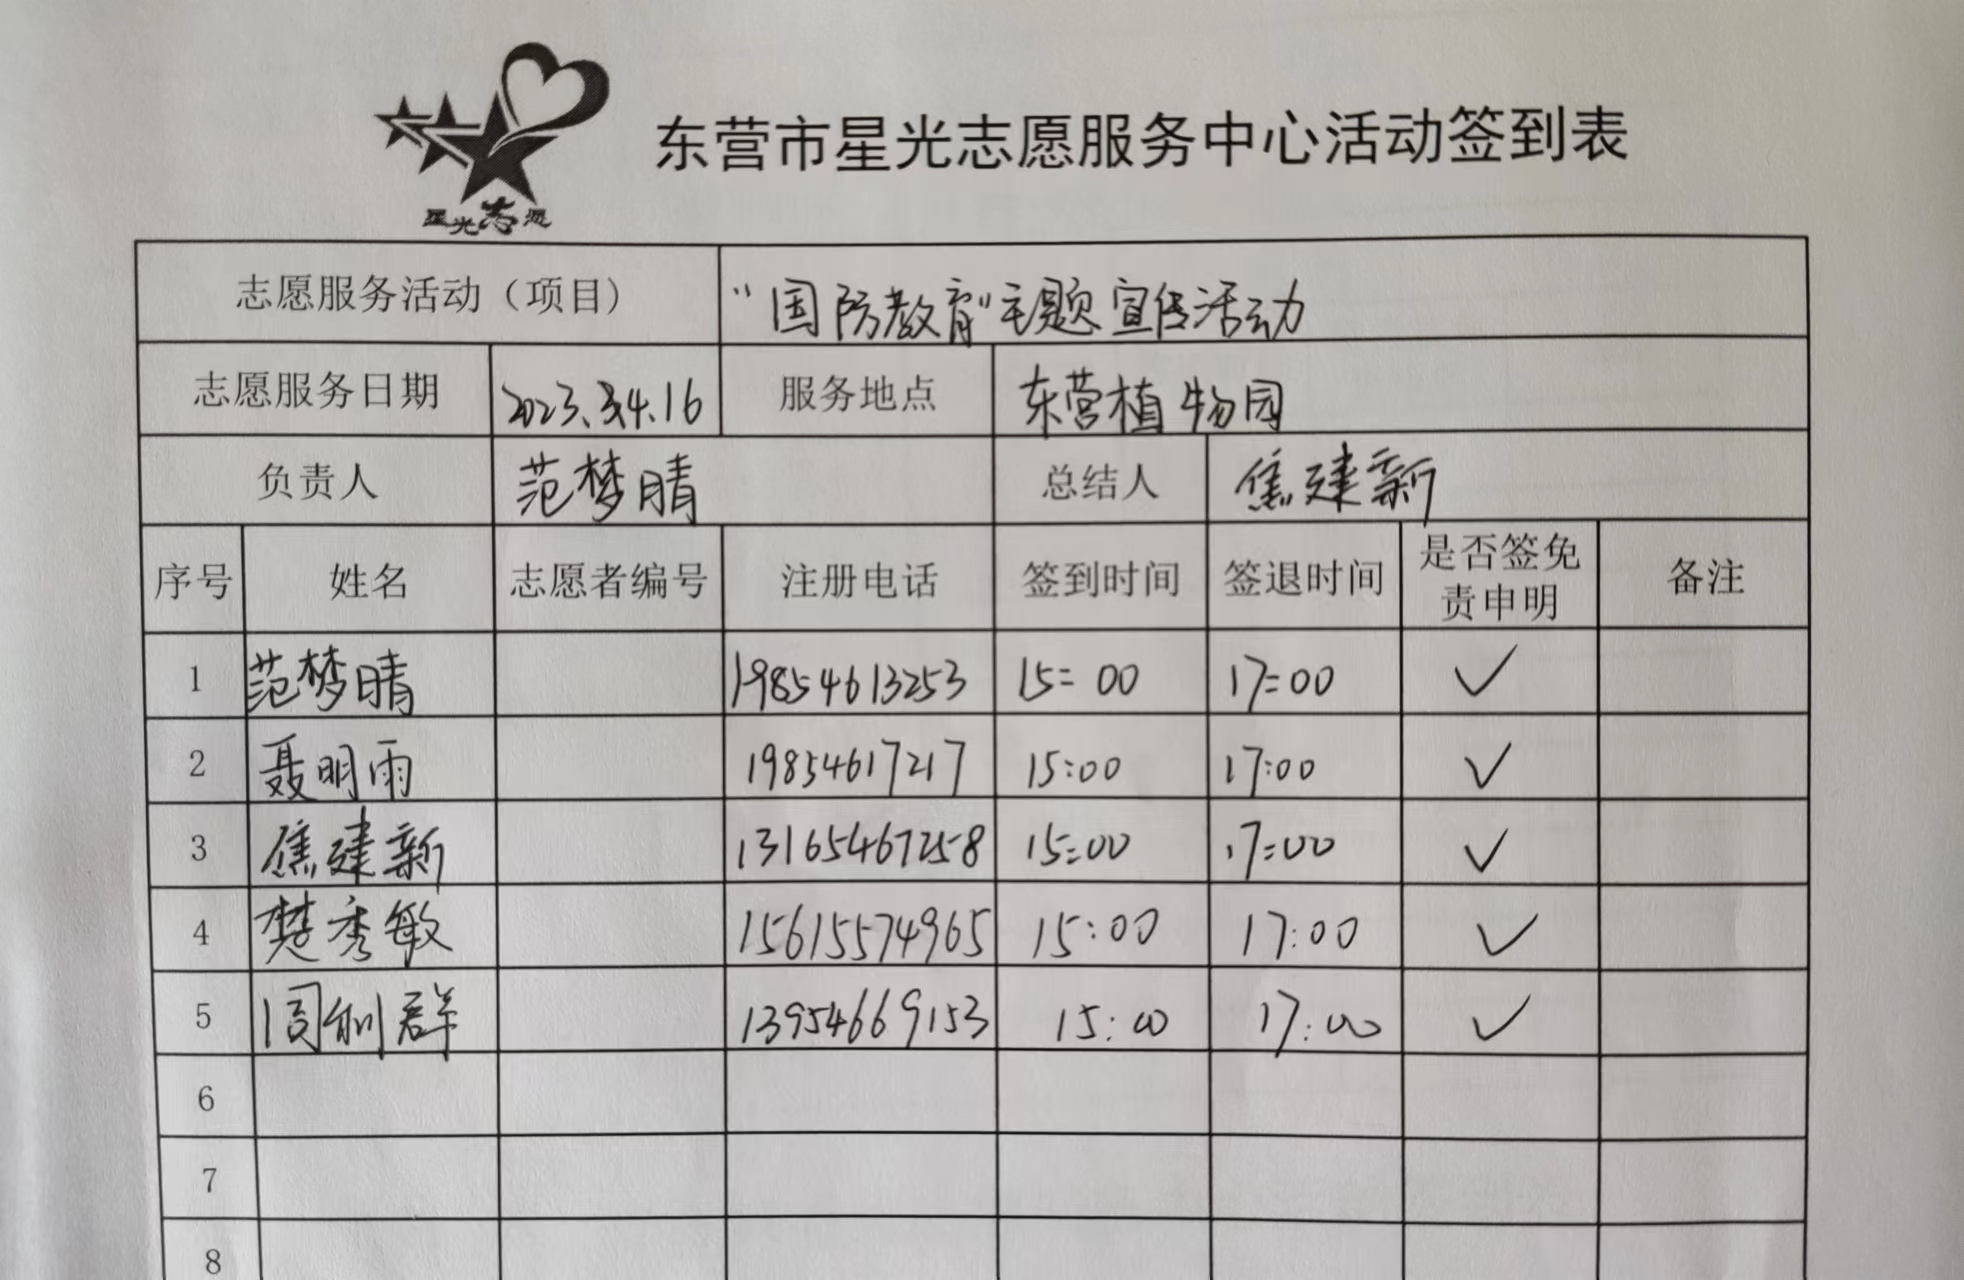 星光志愿
东营市星光志愿服务中心活动签到表
志愿服务活动（项目） “国防教育”主题宣传活动
志愿服务日期 2023.4.16 服务地点 东营植物园
负责人 范梦晴 总结人 焦建新
序号 姓名 志愿者编号 注册电话 签到时间 签退时间 是否签免责申明 备注
1 范梦晴 19854613253 15:00 17:00 ✓
2 聂明雨 19854617217 15:00 17:00 ✓
3 焦建新 13165467258 15:00 17:00 ✓
4 楚秀敏 15615574965 15:00 17:00 ✓
5 周利群 13954669153 15:00 17:00 ✓
6
7
8